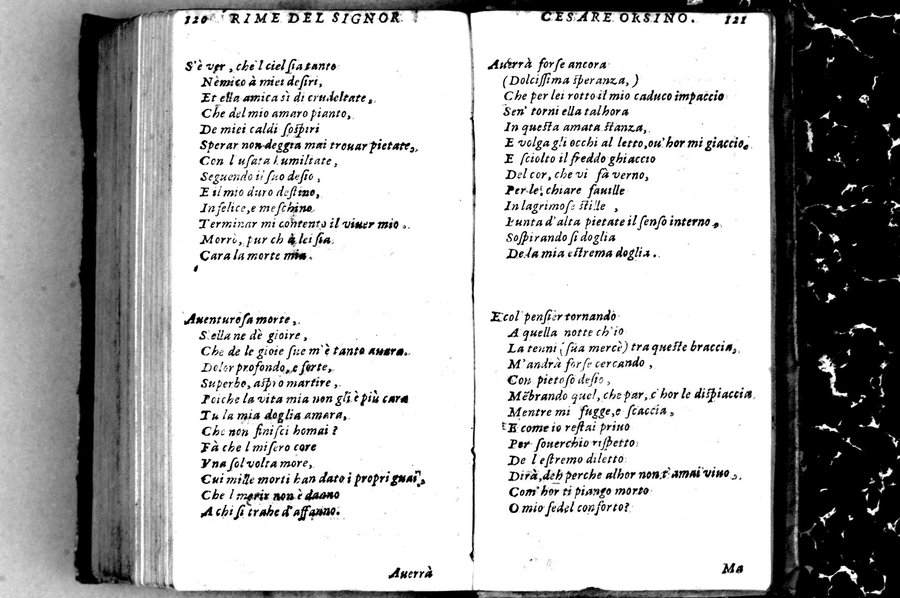 120 RIME DEL SIGNOR
S'è ver, che'l ciel ſia tanto
Nemico à miei deſiri,
Et ella amica sì di crudeltate,
Che del mio amaro pianto,
De miei caldi ſoſpiri
Sperar non deggia mai trouar pietate,
Con l uſata humiltate,
Seguendo il ſuo deſio,
E il mio duro deſtino,
Infelice, e meſchino
Terminar mi contento il viuer mio.
Morrò, pur ch à lei ſia
Cara la morte mia.
Auenturoſa morte,
S ella ne dè gioire,
Che de le gioie ſue m'è tanto auara.
Dolor profondo, e forte,
Superbo, aſpro martire,
Poiche la vita mia non gli è più cara
Tu la mia doglia amara,
Che non finiſci homai?
Fà che l miſero core
Vna ſol volta more,
Cui mille morti han dato i propri guai,
Che l morir non è danno
A chi ſi trahe d'affanno.
Auerrà
CESARE ORSINO. 121
Auerrà forſe ancora
(Dolciſſima ſperanza,)
Che per lei rotto il mio caduco impaccio
Sen' torni ella talhora
In queſta amata ſtanza,
E volga gli occhi al letto, ou'hor mi giaccio,
E ſciolto il freddo ghiaccio
Del cor, che vi fà verno,
Per le chiare fauille
In lagrimoſe ſtille,
Punta d'alta pietate il ſenſo interno,
Soſpirando ſi doglia
De la mia eſtrema doglia.
E col penſier tornando
A quella notte ch'io
La tenni (ſua mercè) tra queſte braccia,
M'andrà forſe cercando,
Con pietoſo deſio,
Mẽbrando quel, che par, c'hor le diſpiaccia
Mentre mi fugge, e ſcaccia,
E come io reſtai priuo
Per ſouerchio riſpetto
De l eſtremo diletto
Dirà, deh perche alhor non t'amai viuo,
Com'hor ti piango morto
O mio fedel conforto?
Ma